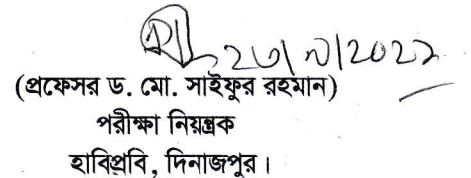 (প্রফেসর ড. মো. সাইফুর রহমান)
পরীক্ষা নিয়ন্ত্রক
হাবিপ্রবি, দিনাজপুর।